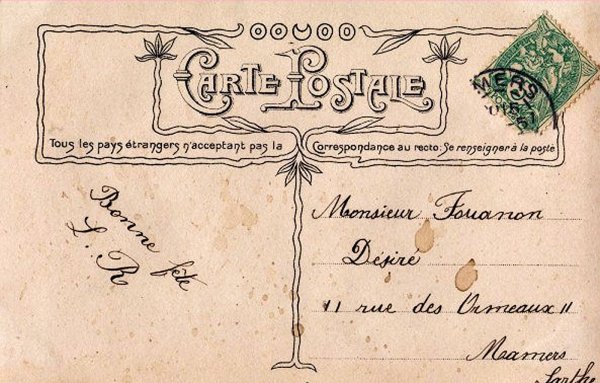 CARTE POSTALE
Tous les pays étrangers n'acceptant pas la Correspondance au recto: Se renseigner à la poste
Bonne fête
L. R
Monsieur Fouanon
Désiré
" rue des Ormeaux "
Mamers
Sarthe